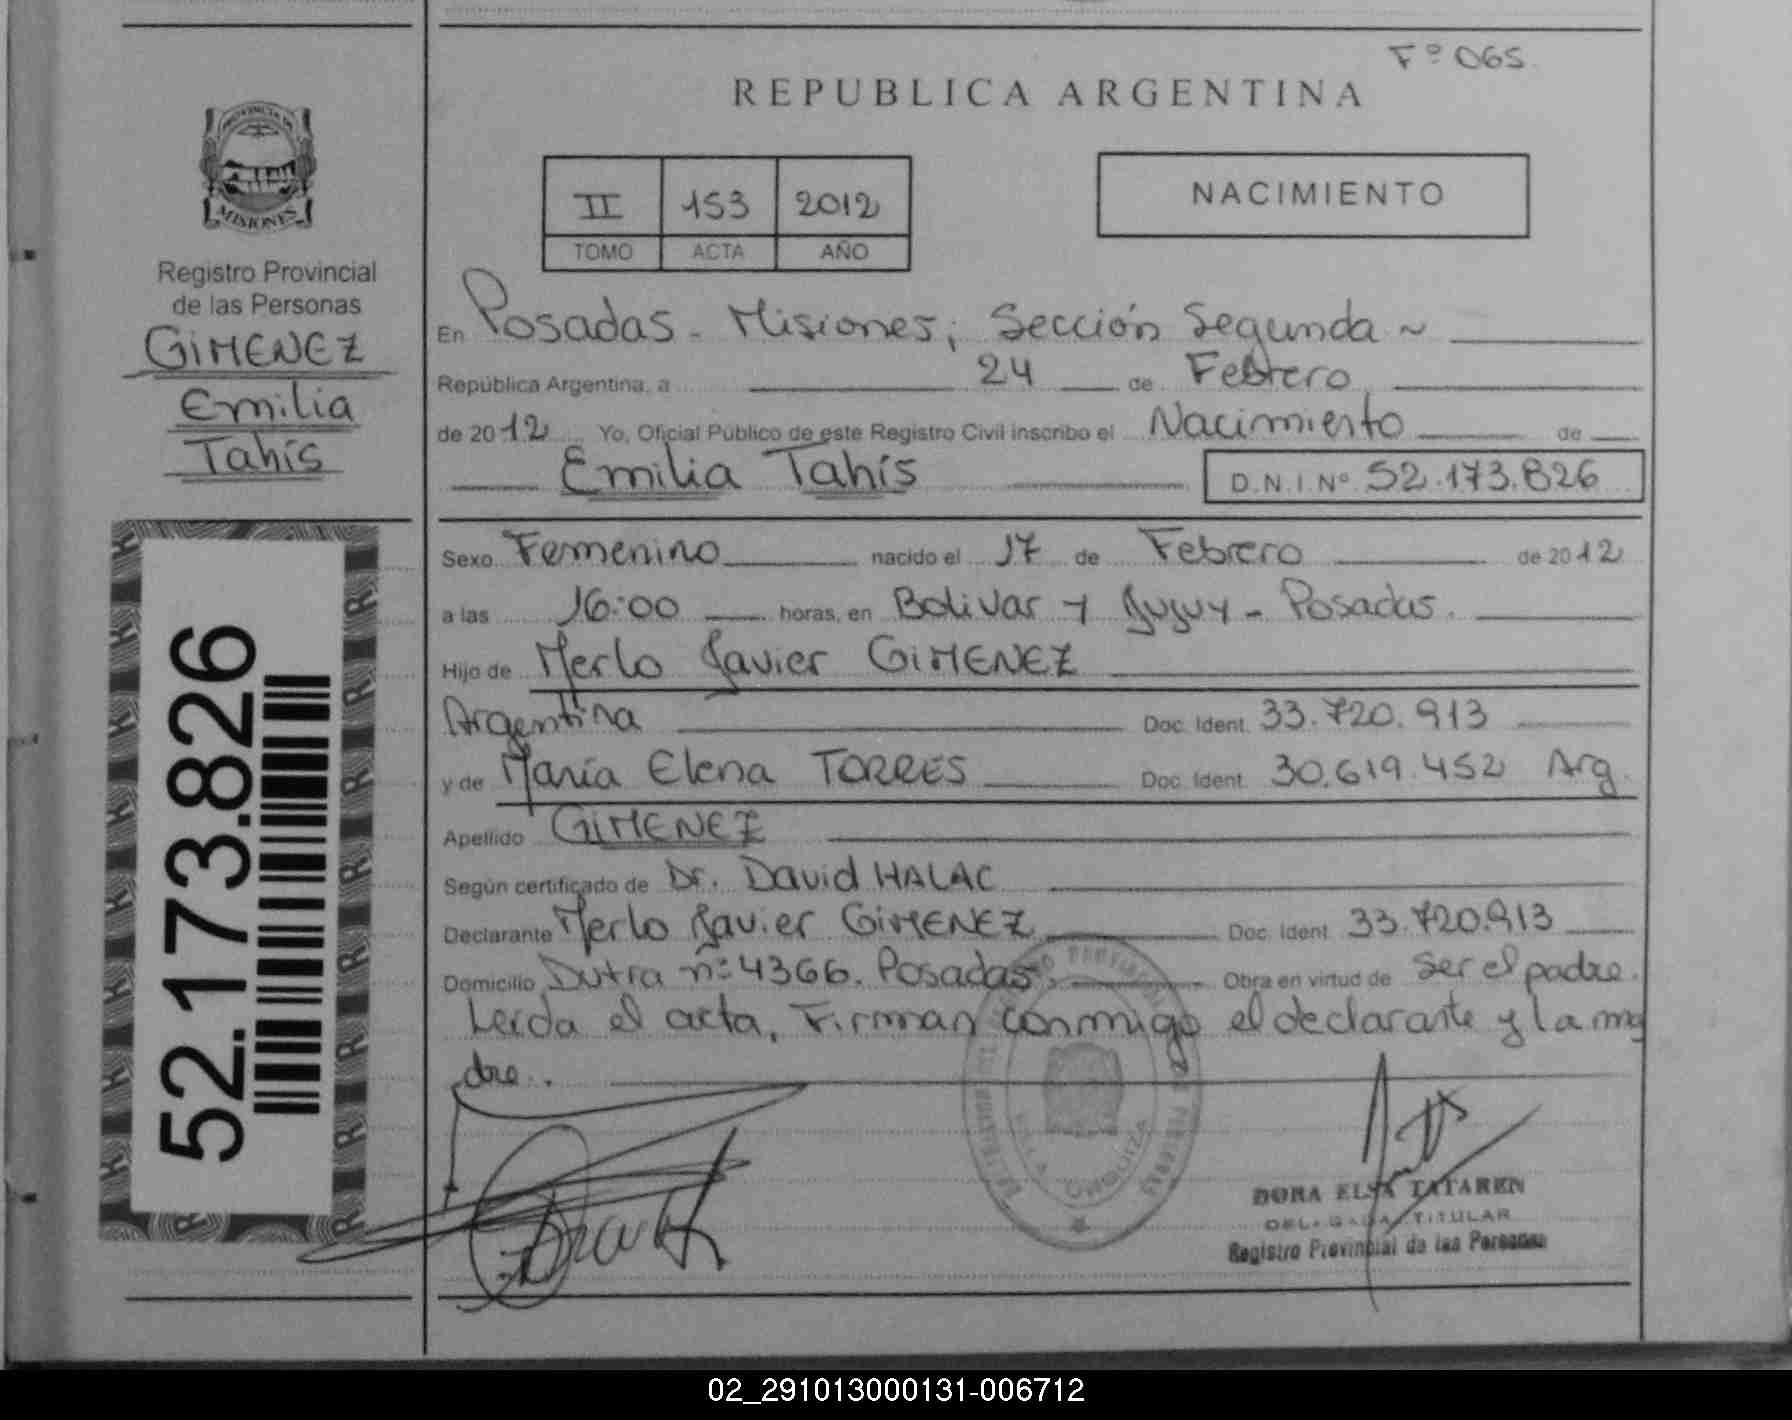 Fº 065
REPUBLICA ARGENTINA
PROVINCIA DE
MISIONES
Registro Provincial
de las Personas
GIMENEZ
Emilia
Tahís
52.173.826
II 153 2012
TOMO ACTA AÑO
NACIMIENTO
En Posadas - Misiones; Sección Segunda ~
República Argentina, a 24 de Febrero
de 2012 Yo, Oficial Público de este Registro Civil inscribo el Nacimiento de
Emilia Tahís D.N.I. Nº 52.173.826
Sexo Femenino nacido el 17 de Febrero de 2012
a las 16:00 horas, en Bolivar y Jujuy - Posadas.
Hijo de Merlo Javier GIMENEZ
Argentina Doc. Ident. 33.720.913
y de María Elena TORRES Doc. Ident. 30.619.452 Arg.
Apellido GIMENEZ
Según certificado de Dr. David HALAC
Declarante Merlo Javier GIMENEZ Doc. Ident. 33.720.913
Domicilio Dutra nº 4366. Posadas. Obra en virtud de ser el padre.
Leída el acta, Firman conmigo el declarante y la ma
dre.
DORA ELSA TATAREN
DELEGADA TITULAR
Registro Provincial de las Personas
VILLA URQUIZA
02_291013000131-006712